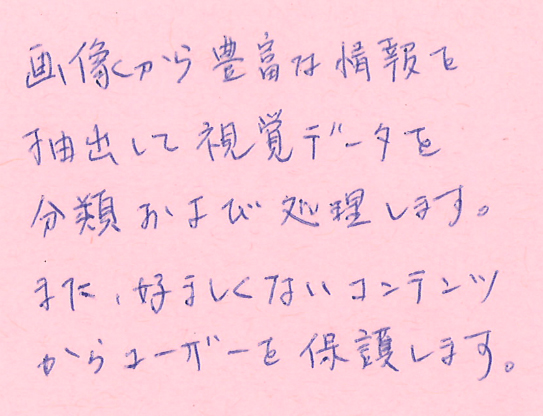 画像から豊富な情報を
抽出して視覚データを
分類および処理します。
また、好ましくないコンテンツ
からユーザーを保護します。